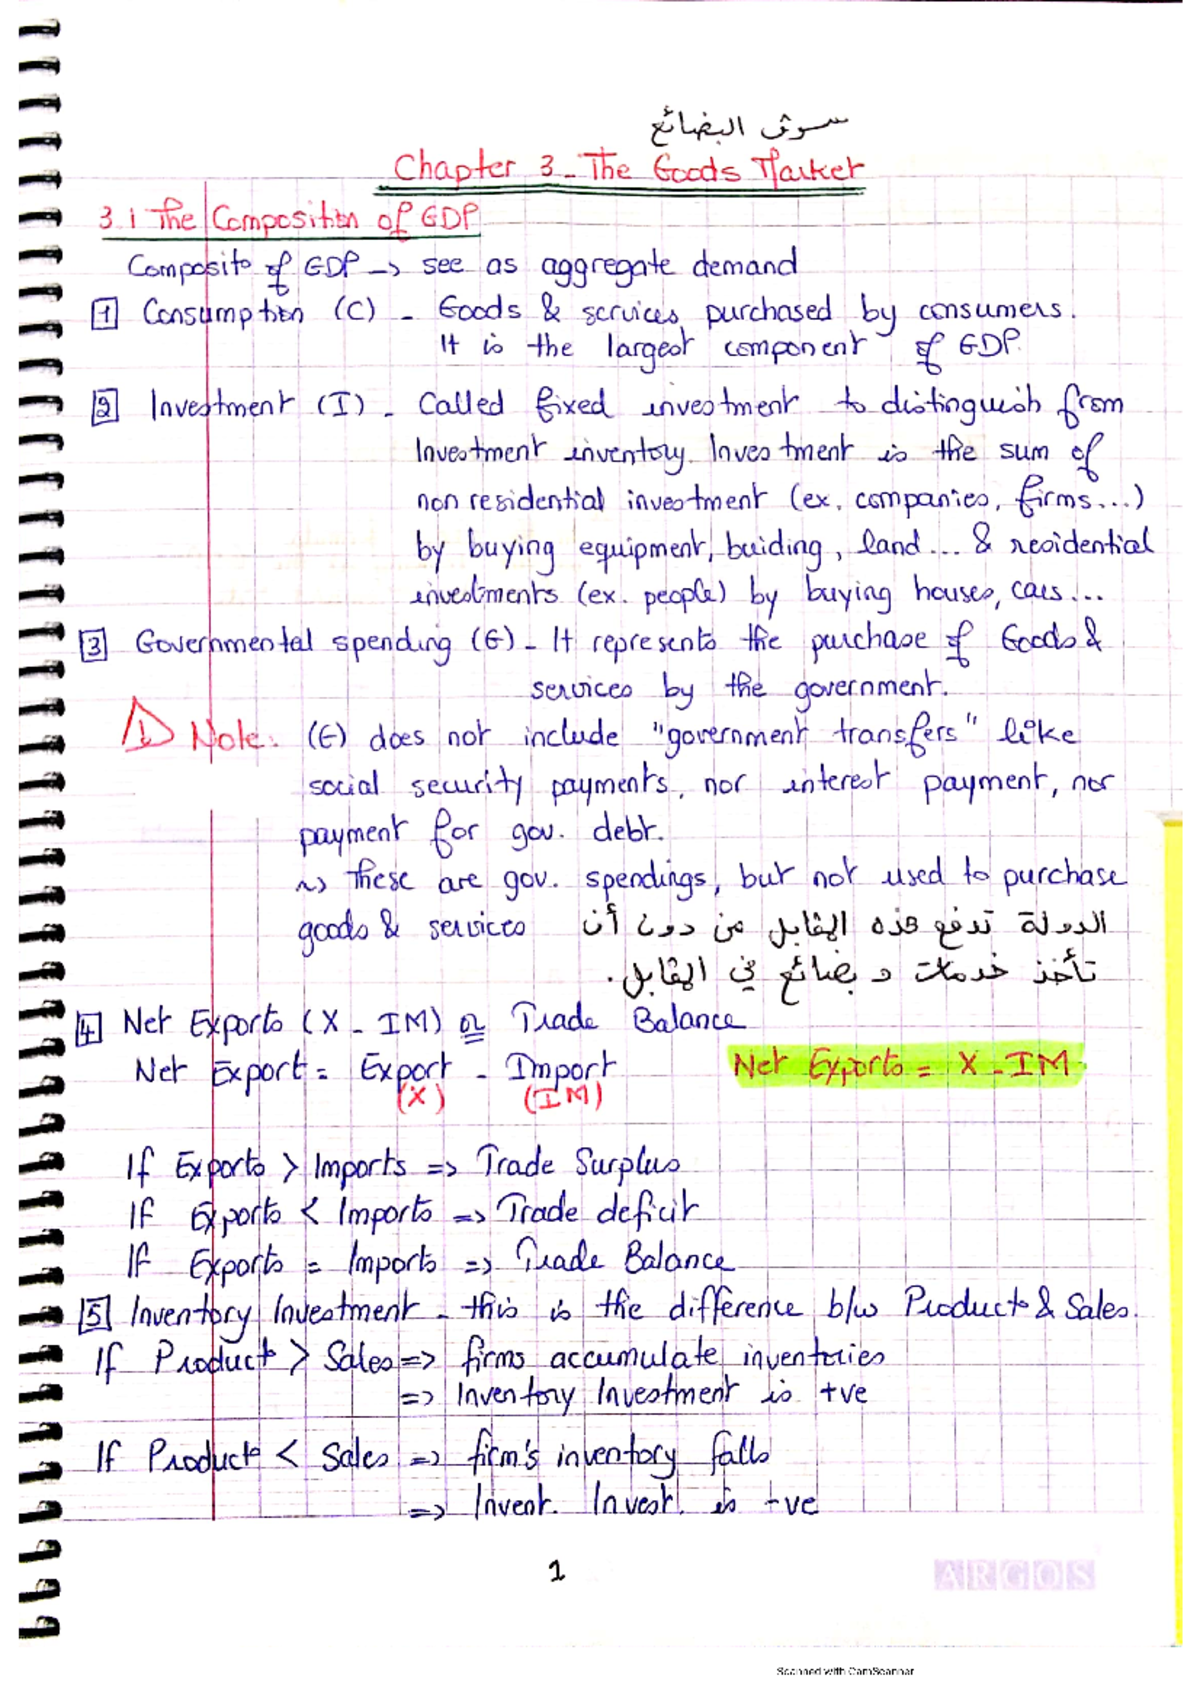 سوق البضائع
Chapter 3 - The Goods Market
3.1 The Composition of GDP
Composito of GDP -> see as aggregate demand
1 Consumption (C) - Goods & services purchased by consumers.
It is the largest component of GDP.
2 Investment (I) - Called fixed investment to distinguish from
Investment inventory. Investment is the sum of
non residential investment (ex. companies, firms...)
by buying equipment, buiding, land... & residential
investments (ex. people) by buying houses, cars...
3 Governmental spending (G) - It represents the purchase of Goods &
services by the government.
Note: (G) does not include "government transfers" like
social security payments, nor interest payment, nor
payment for gov. debt.
~> These are gov. spendings, but not used to purchase
goods & services الدولة تدفع هذه المقابل من دون أن
تأخذ خدمات و بضائع في المقابل.
4 Net Exports (X - IM) or Trade Balance
Net Export = Export - Import Net Exports = X - IM
(X) (IM)
If Exports > Imports => Trade Surplus
If Exports < Imports => Trade deficit
If Exports = Imports => Trade Balance
5 Inventory Investment - this is the difference b/w Product & Sales.
If Product > Sales => firms accumulate inventories
=> Inventory Investment is +ve
If Product < Sales => firm's inventory falls
=> Invent. Invest. is -ve
1
ARGOS
Scanned with CamScanner